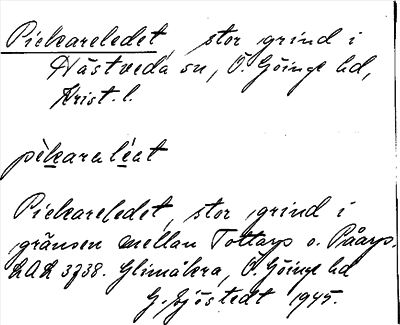 Piekareledet, stor grind i
Hästveda sn, Ö. Göinge hd,
Krist. l.
pèkaraléat
Piekareledet, stor grind i
gränsen mellan Tottarps o. Påarps.
LAL 3738. Glimåkra, Ö. Göinge hd
G. Sjöstedt 1945.